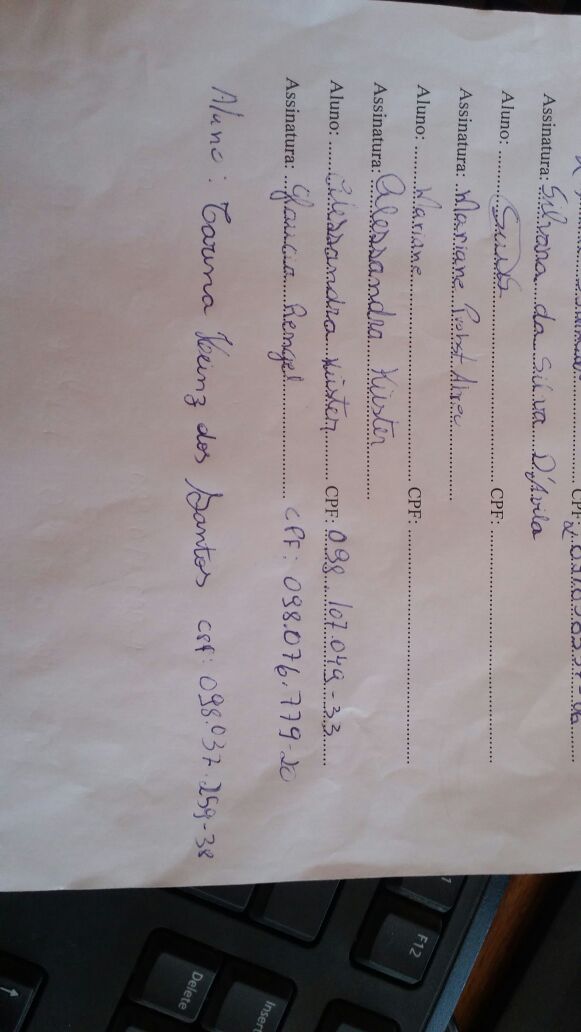 Assinatura: Silvana da Silva D'Avila
Aluno: CPF:
Assinatura: Mariane
Aluno: Mariane CPF:
Assinatura: Alessandra Küster
Aluno: Alessandra Küster CPF: 098.107.049-33
Assinatura: Glaucia Rengel CPF: 098.076.779-20
Aluno: Taruna Heinz dos Santos CPF: 098.037.259-38
F12
Insert
Delete